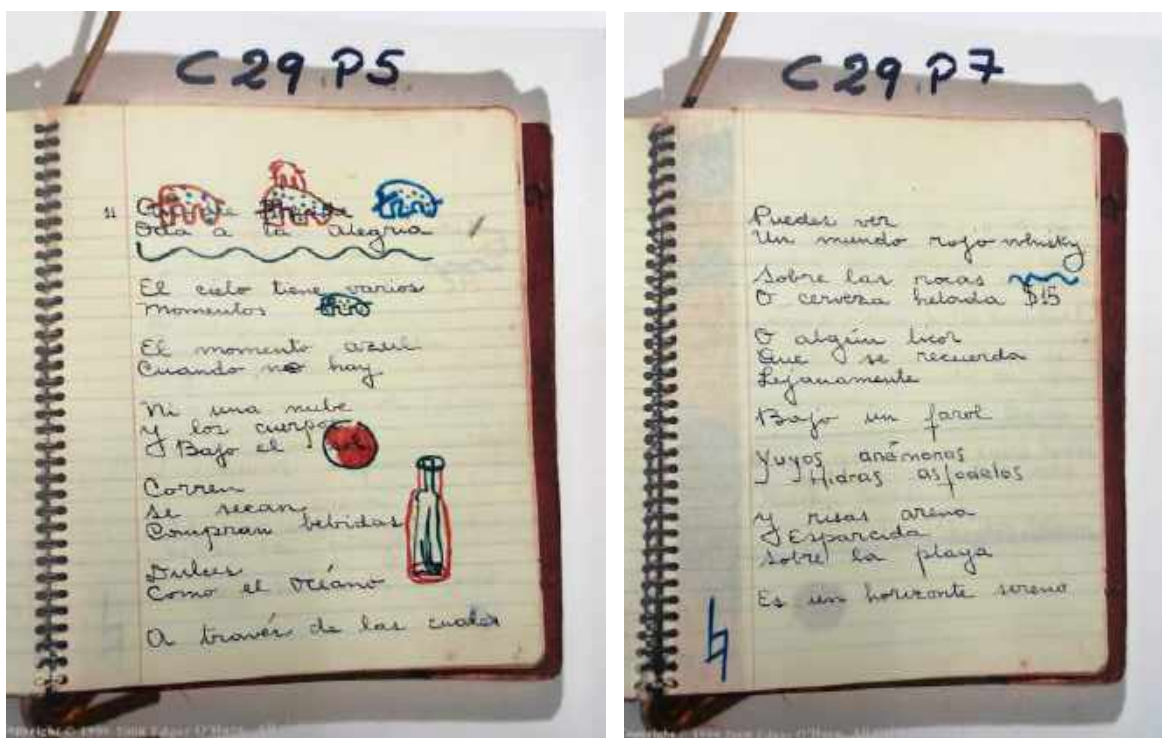 C29.P5
11
Oda a la Alegria
El cielo tiene varios
momentos
El momento azul
Cuando no hay
Ni una nube
y los cuerpos
Bajo el sol
Corren
se secan
Compran bebidas
Dulces
Como el océano
A través de las cuales
C29.P7
Puedes ver
Un mundo rojo whisky
Sobre las rocas
O cerveza helada $15
O algún licor
Que se recuerda
Lejanamente
Bajo un farol
Yuyos anémonas
Hidras asfodelos
y risas arena
Esparcida
Sobre la playa
Es un horizonte sereno